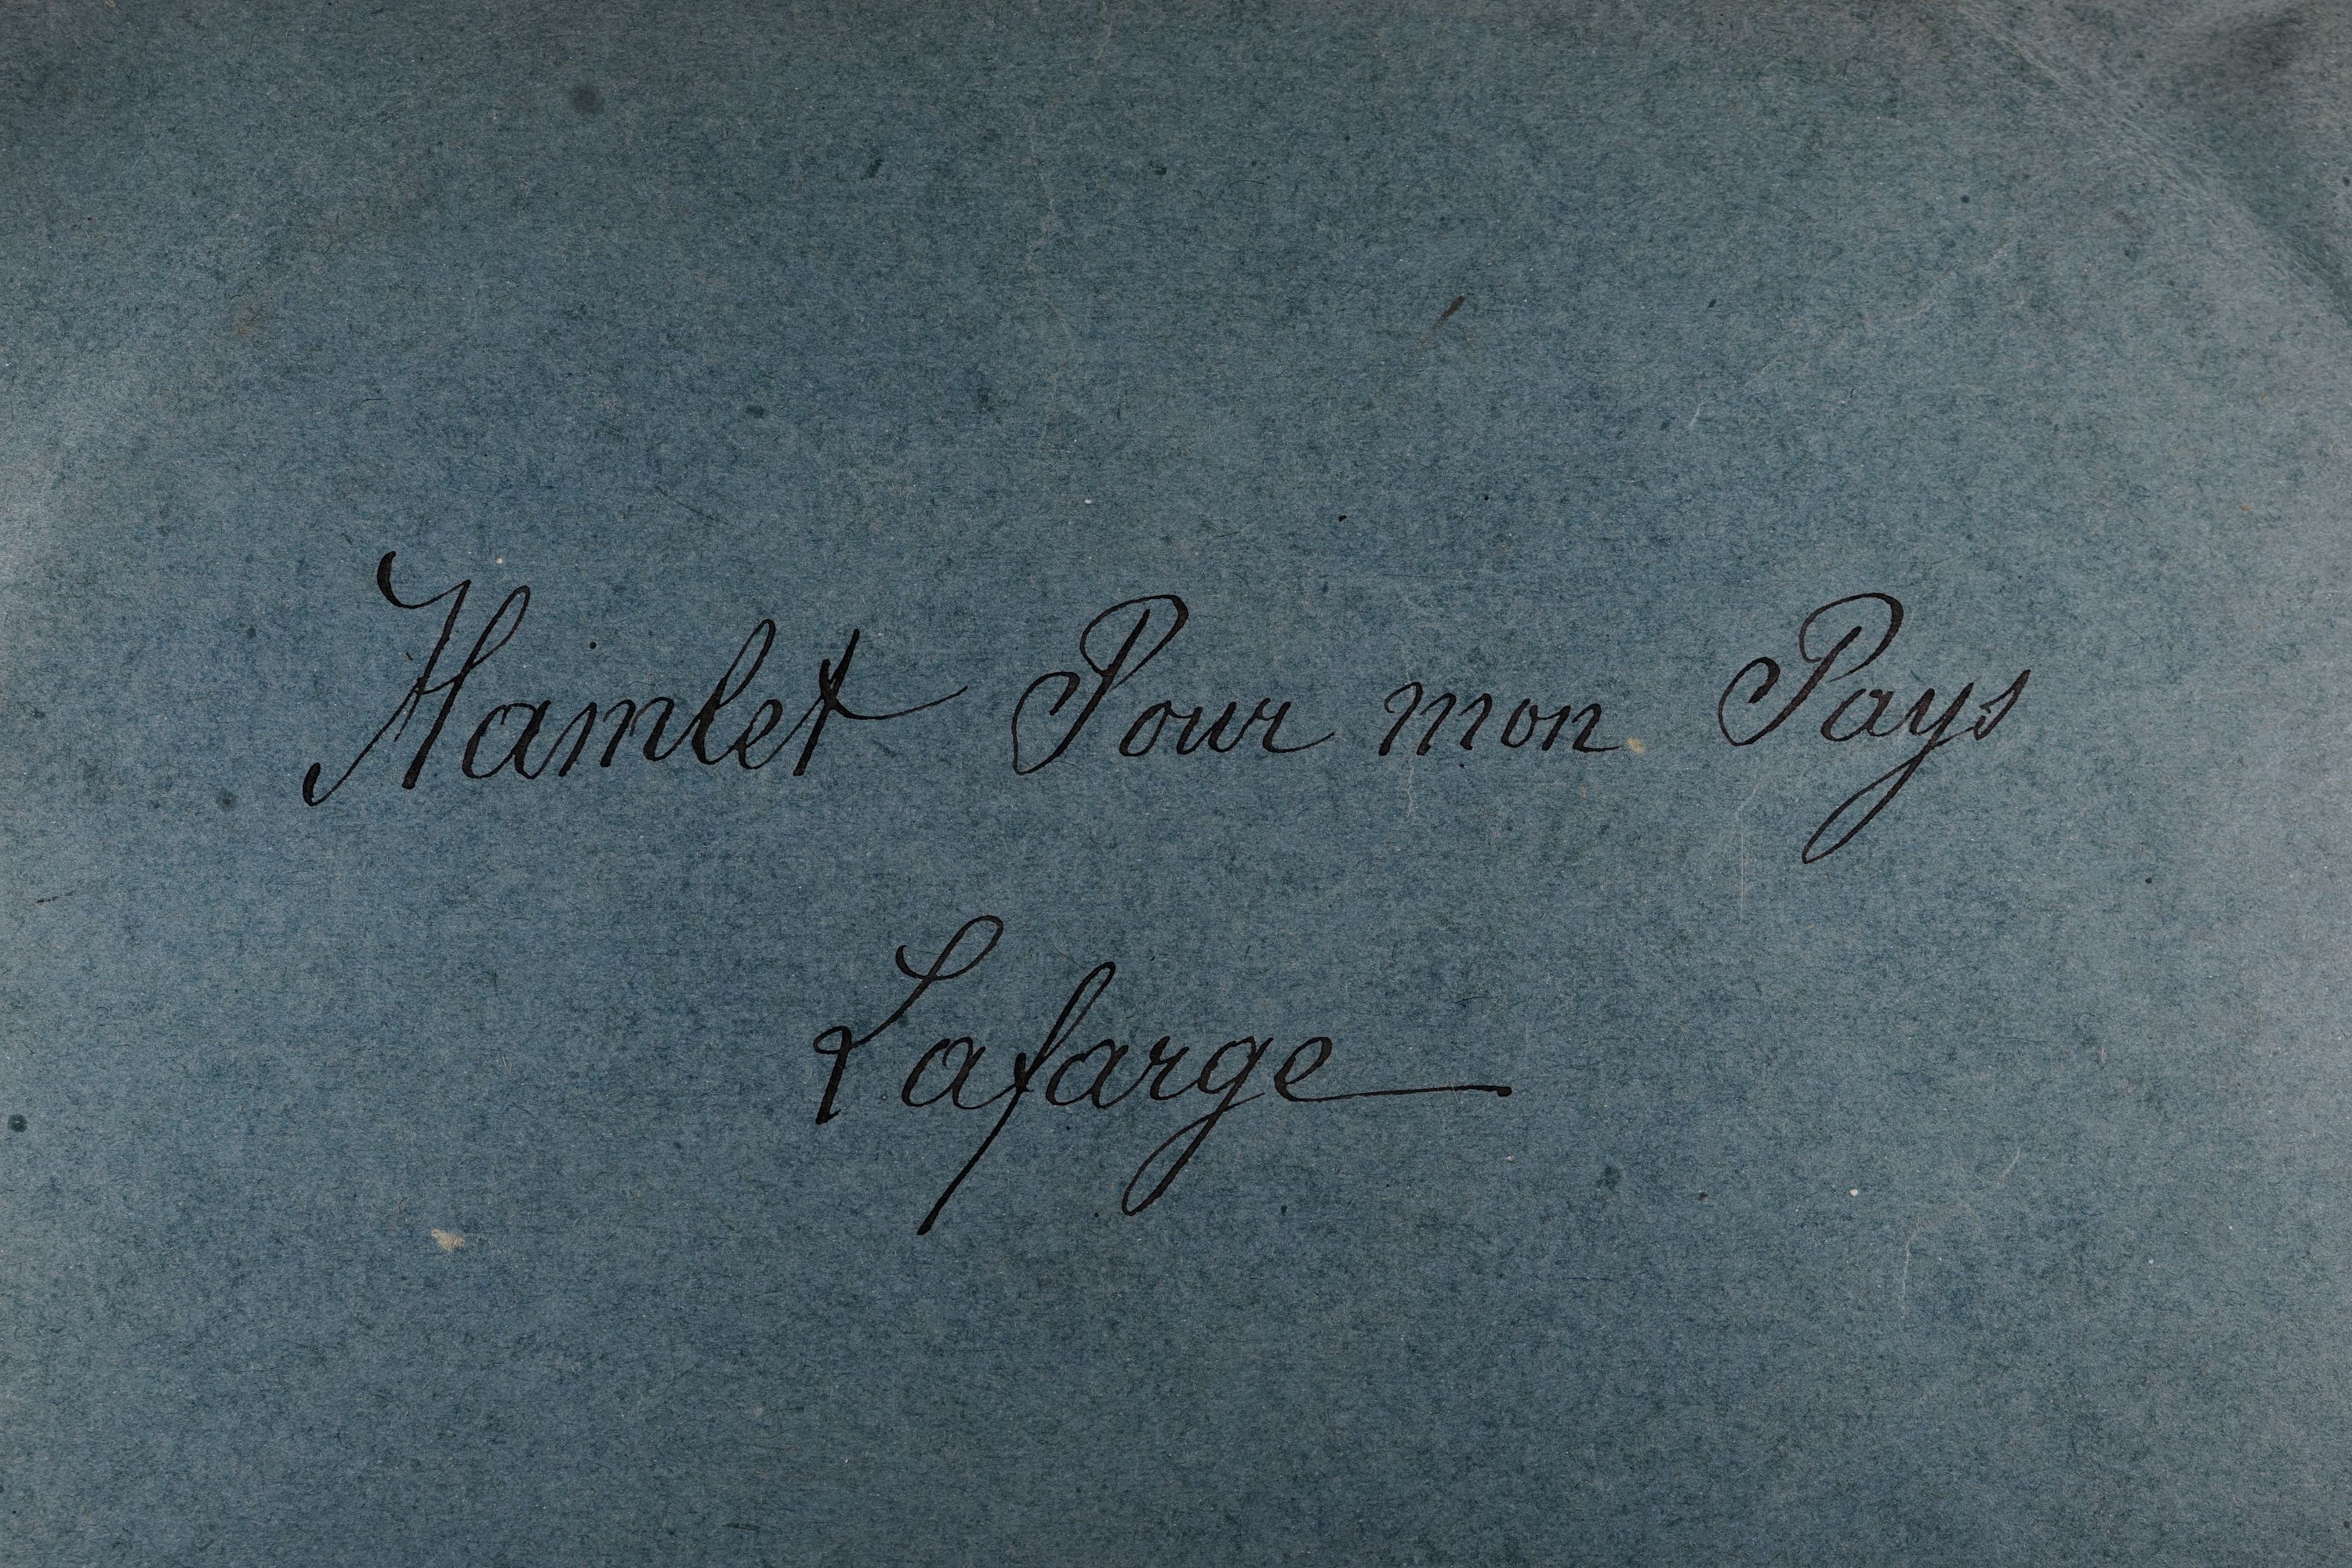 Hamlet Pour mon Pays
Lafarge